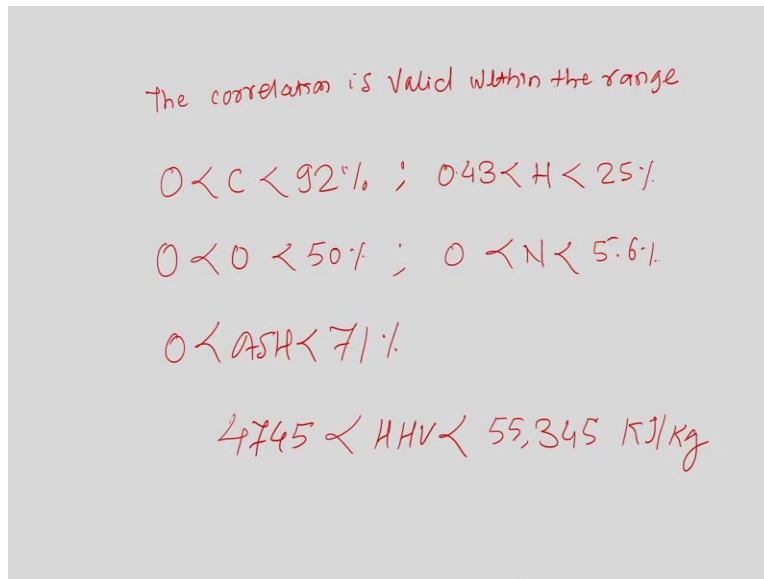 The correlation is valid within the range
0 < C < 92% ; 0.43 < H < 25%
0 < O < 50% ; 0 < N < 5.6%
0 < ASH < 71%
4745 < HHV < 55,345 KJ/Kg